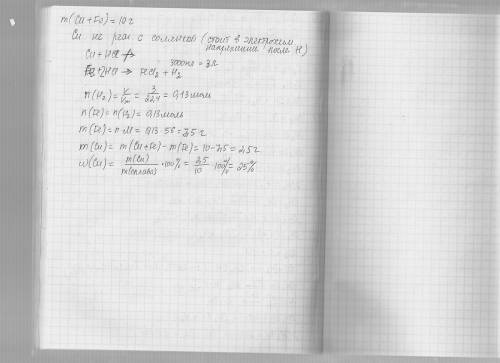 m(Cu+Fe)=10г
Cu не реаг. с соляной (стоит в электрохим.
напряжении после H)
Cu + HCl ↛
3000мл = 3л
Fe + 2HCl → FeCl₂ + H₂
n(H₂) = V/Vm = 3/22,4 = 0,13 моль
n(Fe) = n(H₂) = 0,13 моль
m(Fe) = n·M = 0,13·56 = 7,5 г
m(Cu) = m(Cu+Fe) - m(Fe) = 10-7,5 = 2,5 г
ω(Cu) = m(Cu)/m(сплава) · 100% = 2,5/10 · 100% = 25%